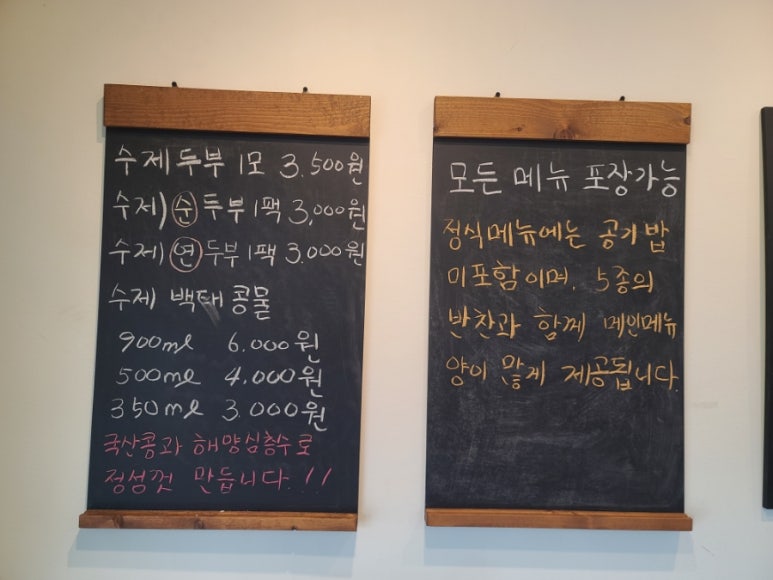 수제 두부 1모 3.500원
수제) 순 두부 1팩 3,000원
수제) 연 두부 1팩 3.000원
수제 백태 콩물
900ml 6.000원
500ml 4,000원
350ml 3.000원
국산콩과 해양심층수로
정성껏 만듭니다.!!
모든 메뉴 포장가능
정식메뉴에는 공기밥
미포함이며, 5종의
반찬과 함께 메인메뉴
양이 많게 제공됩니다.